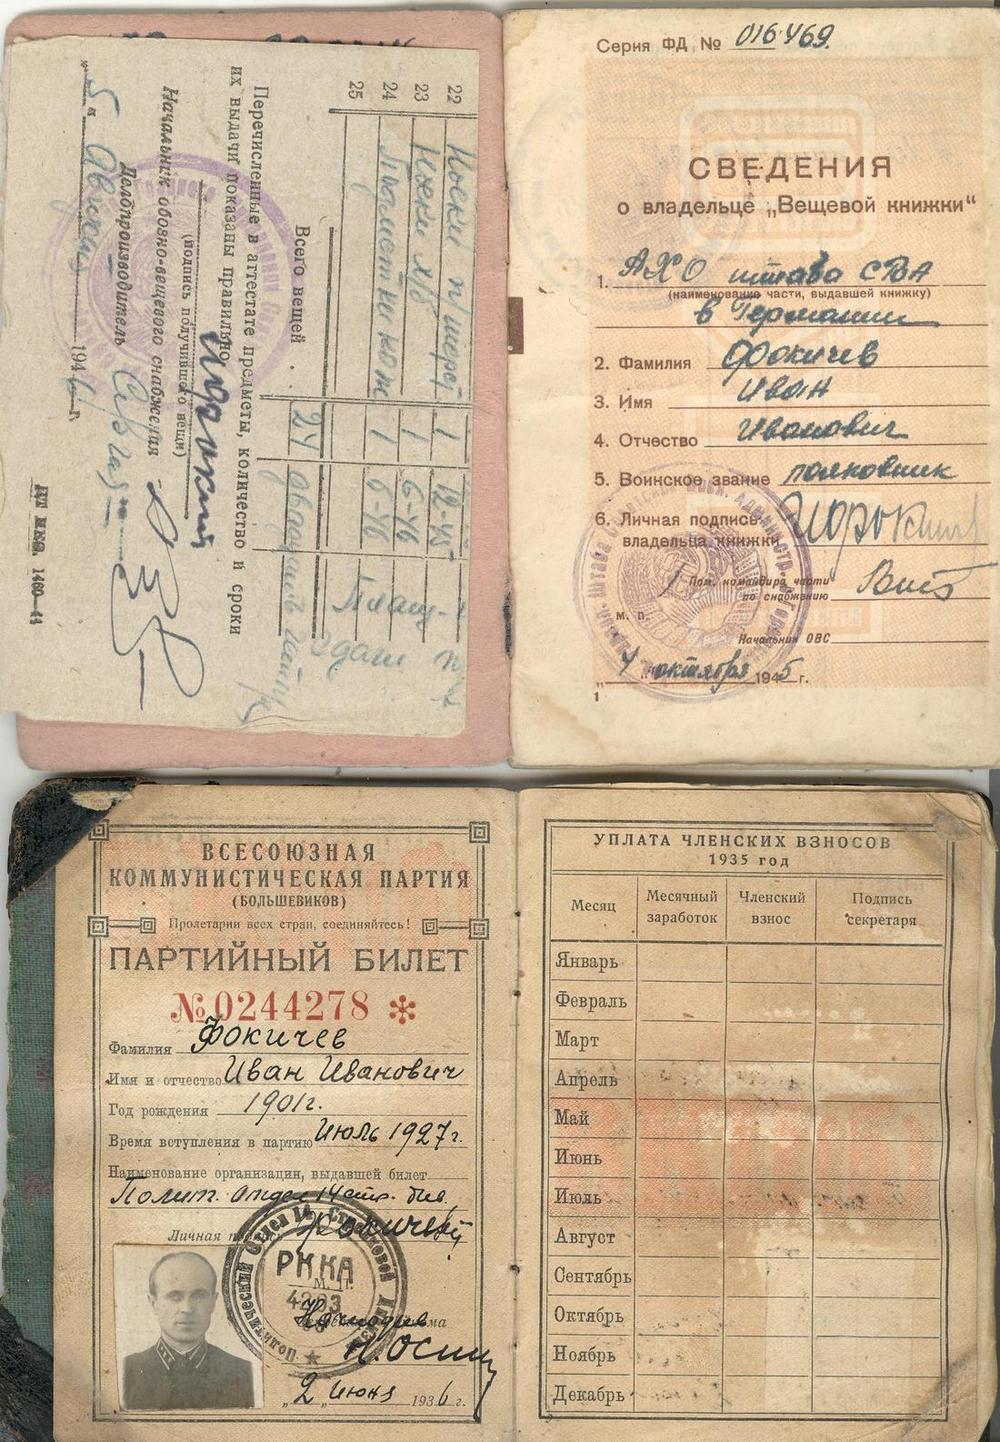 22 Носки п/шерст 1 12-45
23 1 6-46
24 1 6-46
25
Всего вещей 24
Перечисленные в аттестате предметы, количество и сроки
их выдачи показаны правильно.
(подпись получившего вещи)
Начальник обозно-вещевого снабжения
Делопроизводитель
„5“ 1946 г.
Серия ФД № 016469.
СВЕДЕНИЯ
о владельце „Вещевой книжки“
1. АХО штаба СВА
(наименование части, выдавшей книжку)
в Германии
2. Фамилия Фокичев
3. Имя Иван
4. Отчество Иванович
5. Воинское звание полковник
6. Личная подпись
владельца книжки
Пом. командира части
по снабжению
м. п.
Начальник ОВС
„4 октября 1945 г.
1
ВСЕСОЮЗНАЯ
КОММУНИСТИЧЕСКАЯ ПАРТИЯ
(БОЛЬШЕВИКОВ)
Пролетарии всех стран, соединяйтесь!
ПАРТИЙНЫЙ БИЛЕТ
№ 0244278 *
Фамилия Фокичев
Имя и отчество Иван Иванович
Год рождения 1901г.
Время вступления в партию Июль 1927г.
Наименование организации, выдавшей билет
Полит. отдел 14 стр. див.
Личная подпись
РККА
М. П.
„2 июня 1936 г.
УПЛАТА ЧЛЕНСКИХ ВЗНОСОВ
1935 год
Месяц Месячный заработок Членский взнос Подпись секретаря
Январь
Февраль
Март
Апрель
Май
Июнь
Июль
Август
Сентябрь
Октябрь
Ноябрь
Декабрь